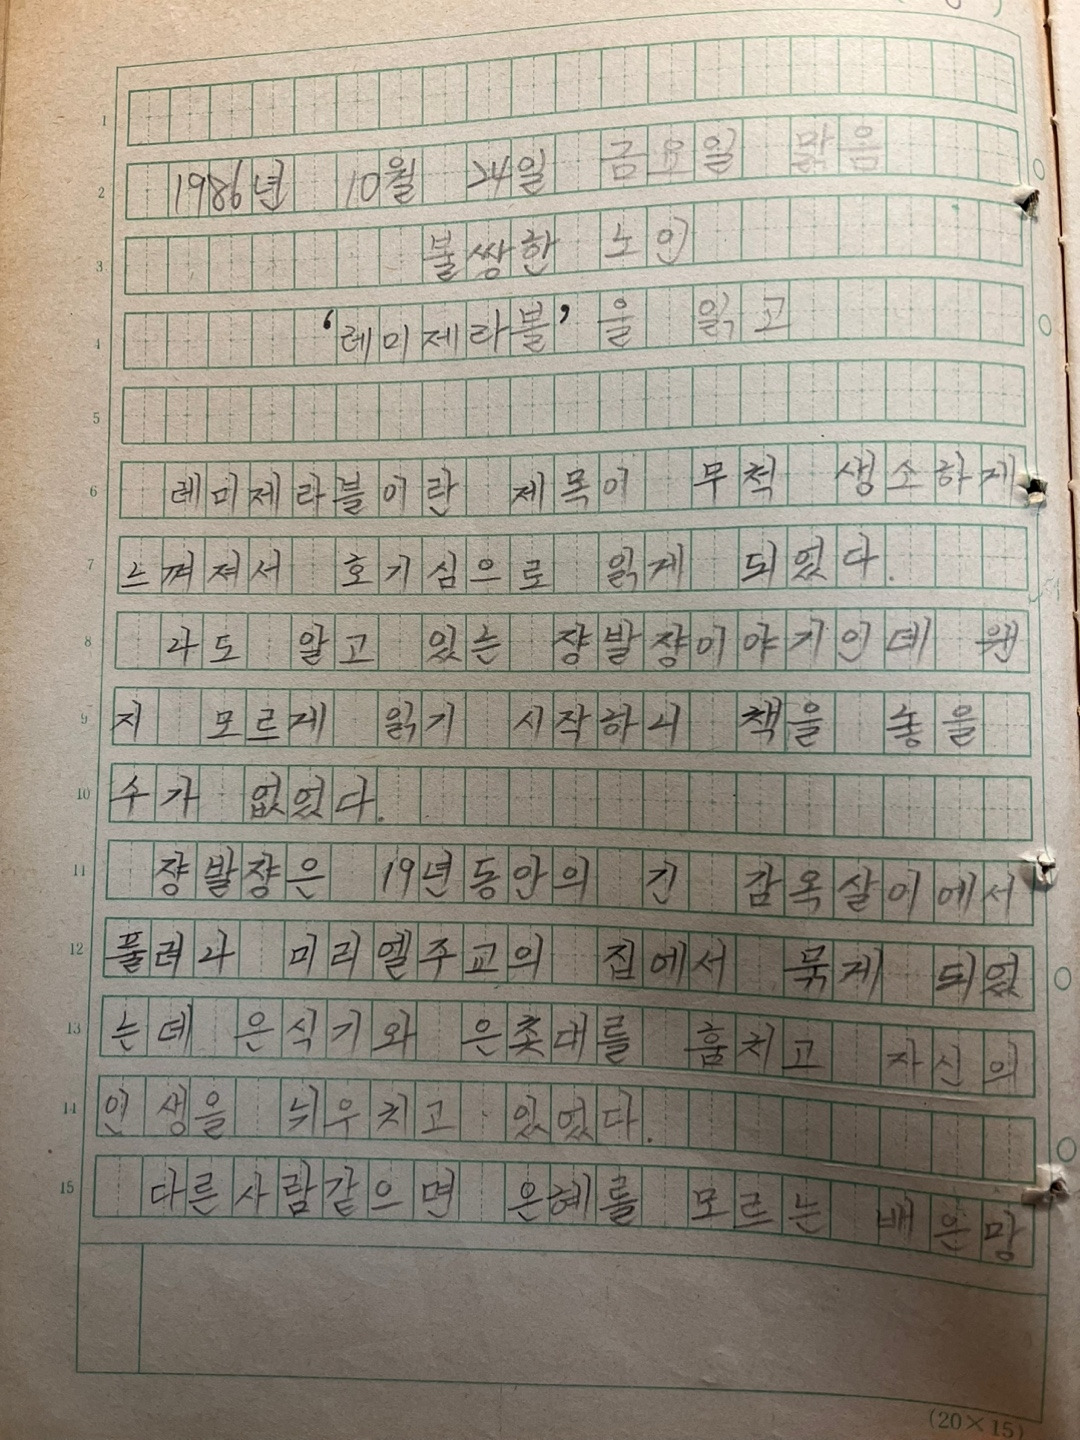 1
2 1986년 10월 24일 금요일 맑음
3 불쌍한 노인
4 ‘레미제라블’을 읽고
5
6 레미제라블이란 제목이 무척 생소하게
7 느껴져서 호기심으로 읽게 되었다.
8 나도 알고 있는 쟝발쟝이야기인데 웬
9 지 모르게 읽기 시작하니 책을 놓을
10 수가 없었다.
11 쟝발쟝은 19년동안의 긴 감옥살이에서
12 풀려나 미리엘주교의 집에서 묵게 되었
13 는데 은식기와 은촛대를 훔치고 자신의
14 인생을 뉘우치고 있었다.
15 다른사람같으면 은혜를 모르는 배은망
(20×15)